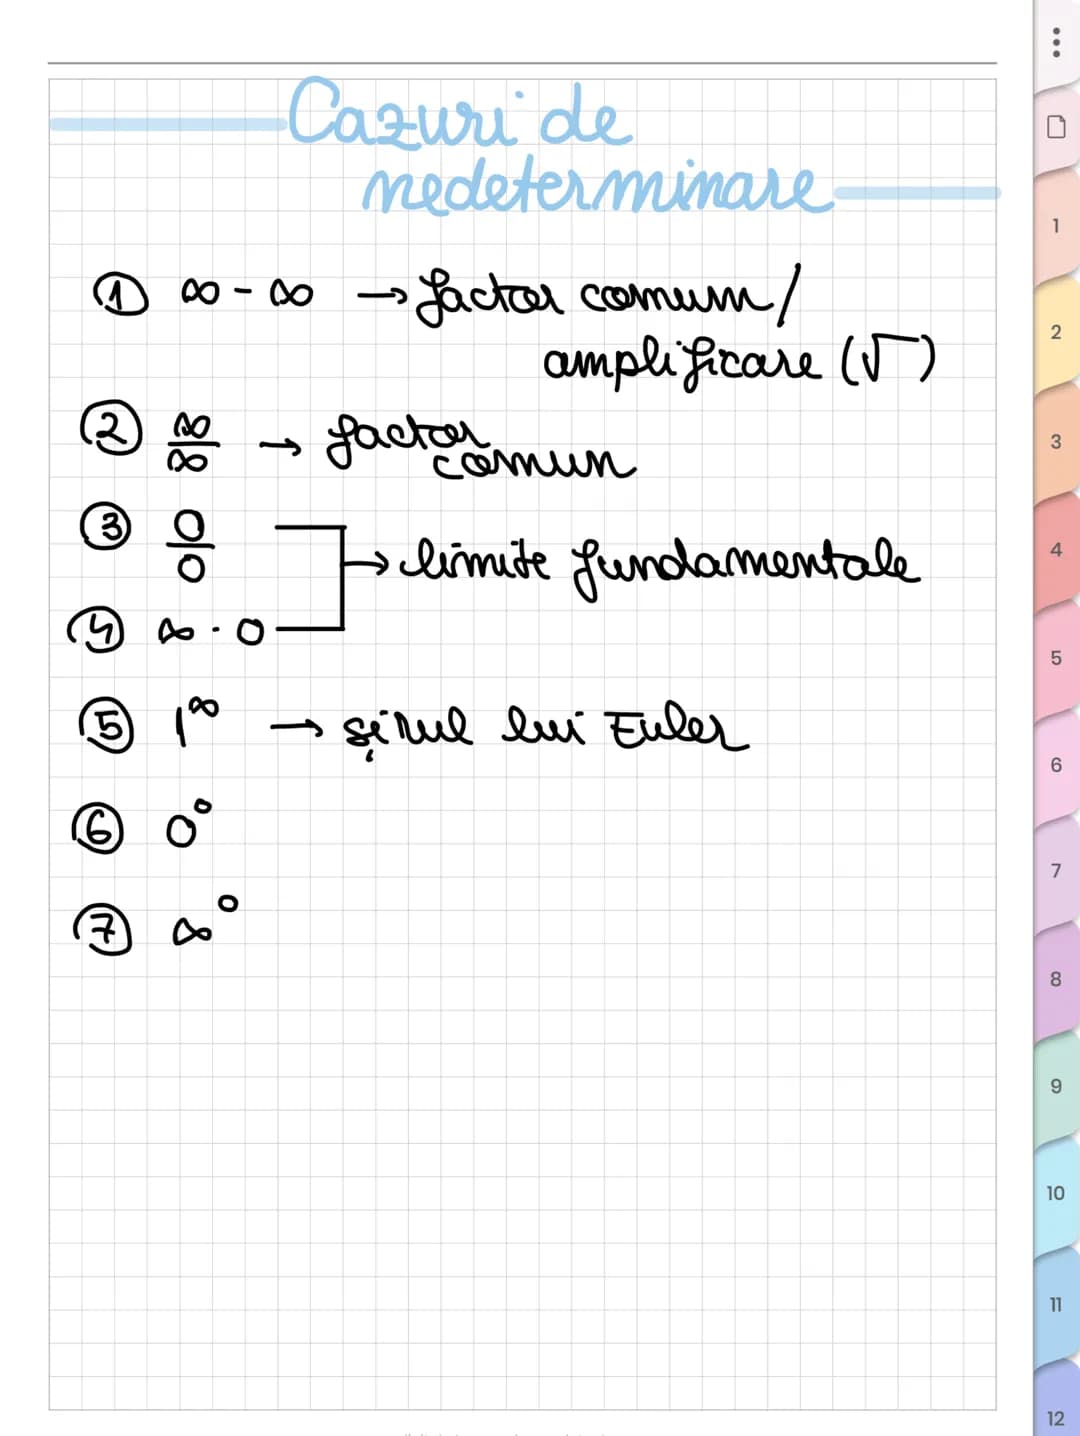 Cazuri de
nedeterminare
① ∞ - ∞ → factor comun/
amplificare (√)
② ∞/∞ → factor
comun
③ 0/0
→ limite fundamentale
④ ∞ · 0
⑤ 1^∞ → șirul lui Euler
⑥ 0^0
⑦ ∞^0
1
2
3
4
5
6
7
8
9
10
11
12